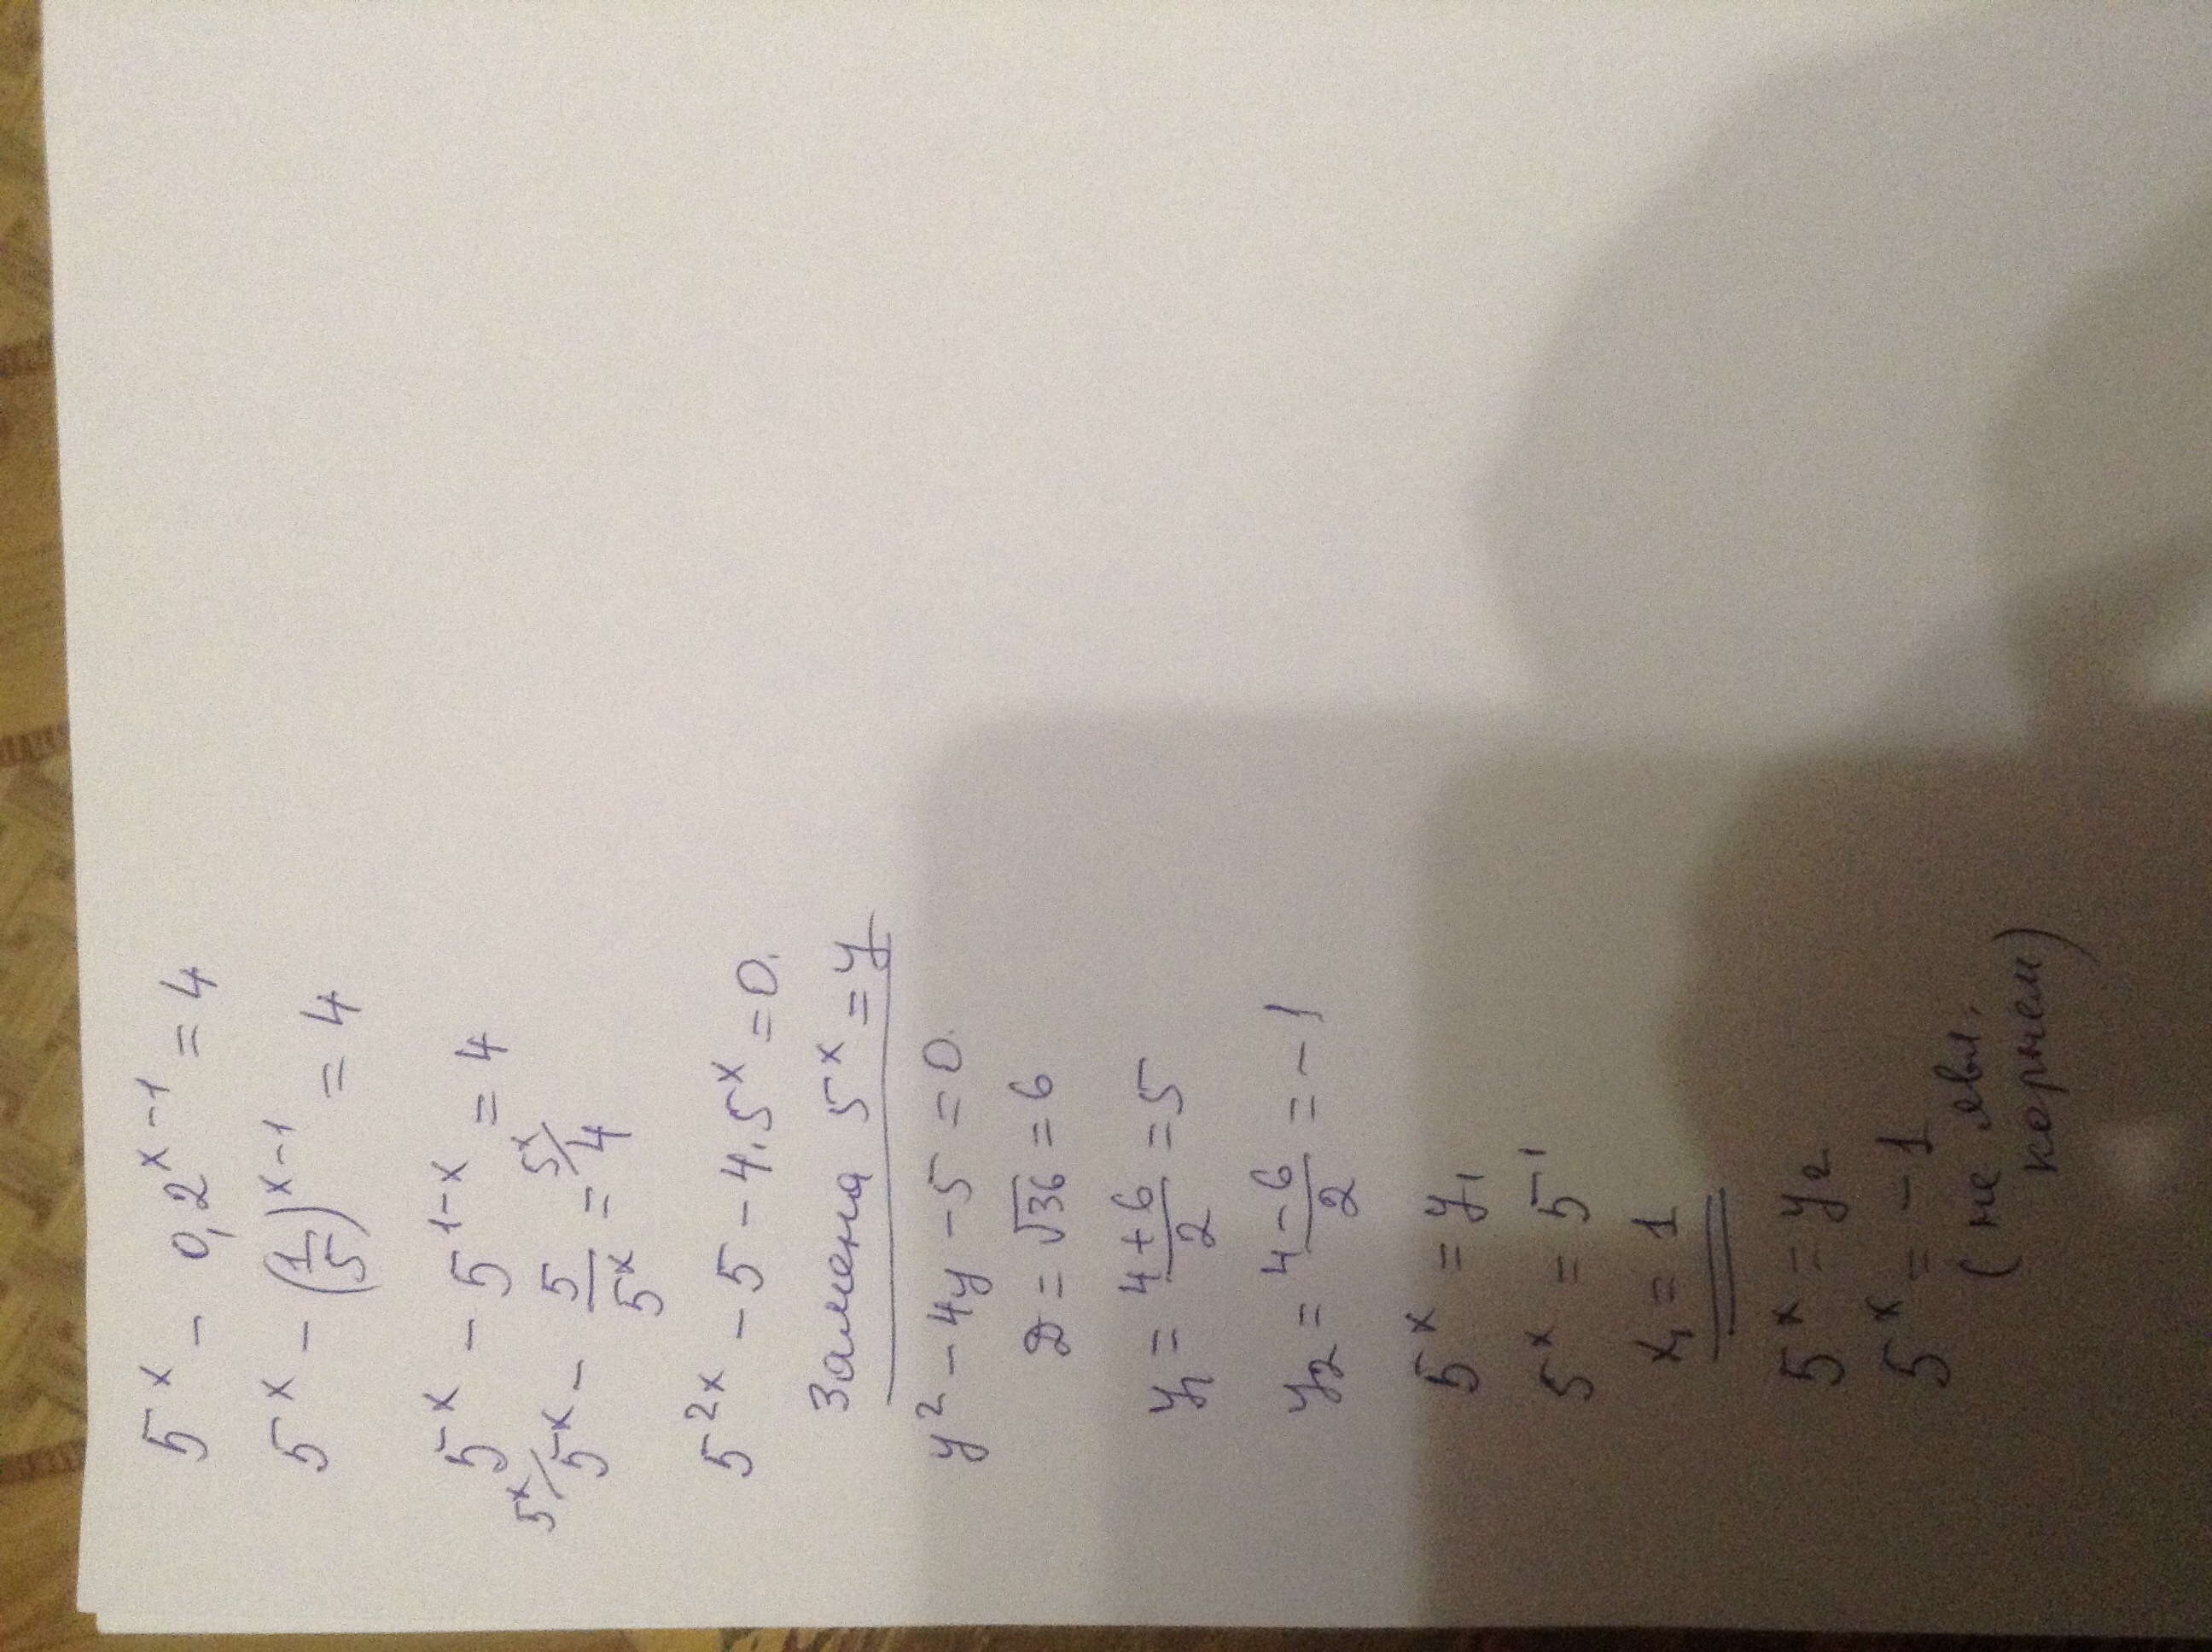 5^x - 0,2^(x-1) = 4
5^x - (1/5)^(x-1) = 4
5^x - 5^(1-x) = 4
5^x/ 5^x - 5/5^x = 5^x/ 4
5^(2x) - 5 - 4·5^x = 0.
Замена 5^x = y
y² - 4y - 5 = 0.
D = √36 = 6
y₁ = (4+6)/2 = 5
y₂ = (4-6)/2 = -1
5^x = y₁
5^x = 5^1
x₁ = 1
5^x = y₂
5^x = -1
(не явл.
корнем)